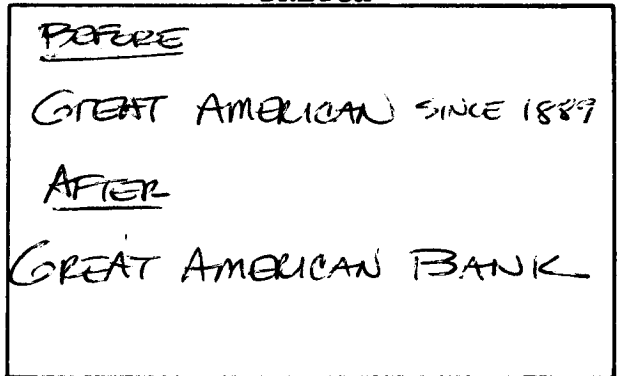 BEFORE
GREAT AMERICAN SINCE 1889
AFTER
GREAT AMERICAN BANK